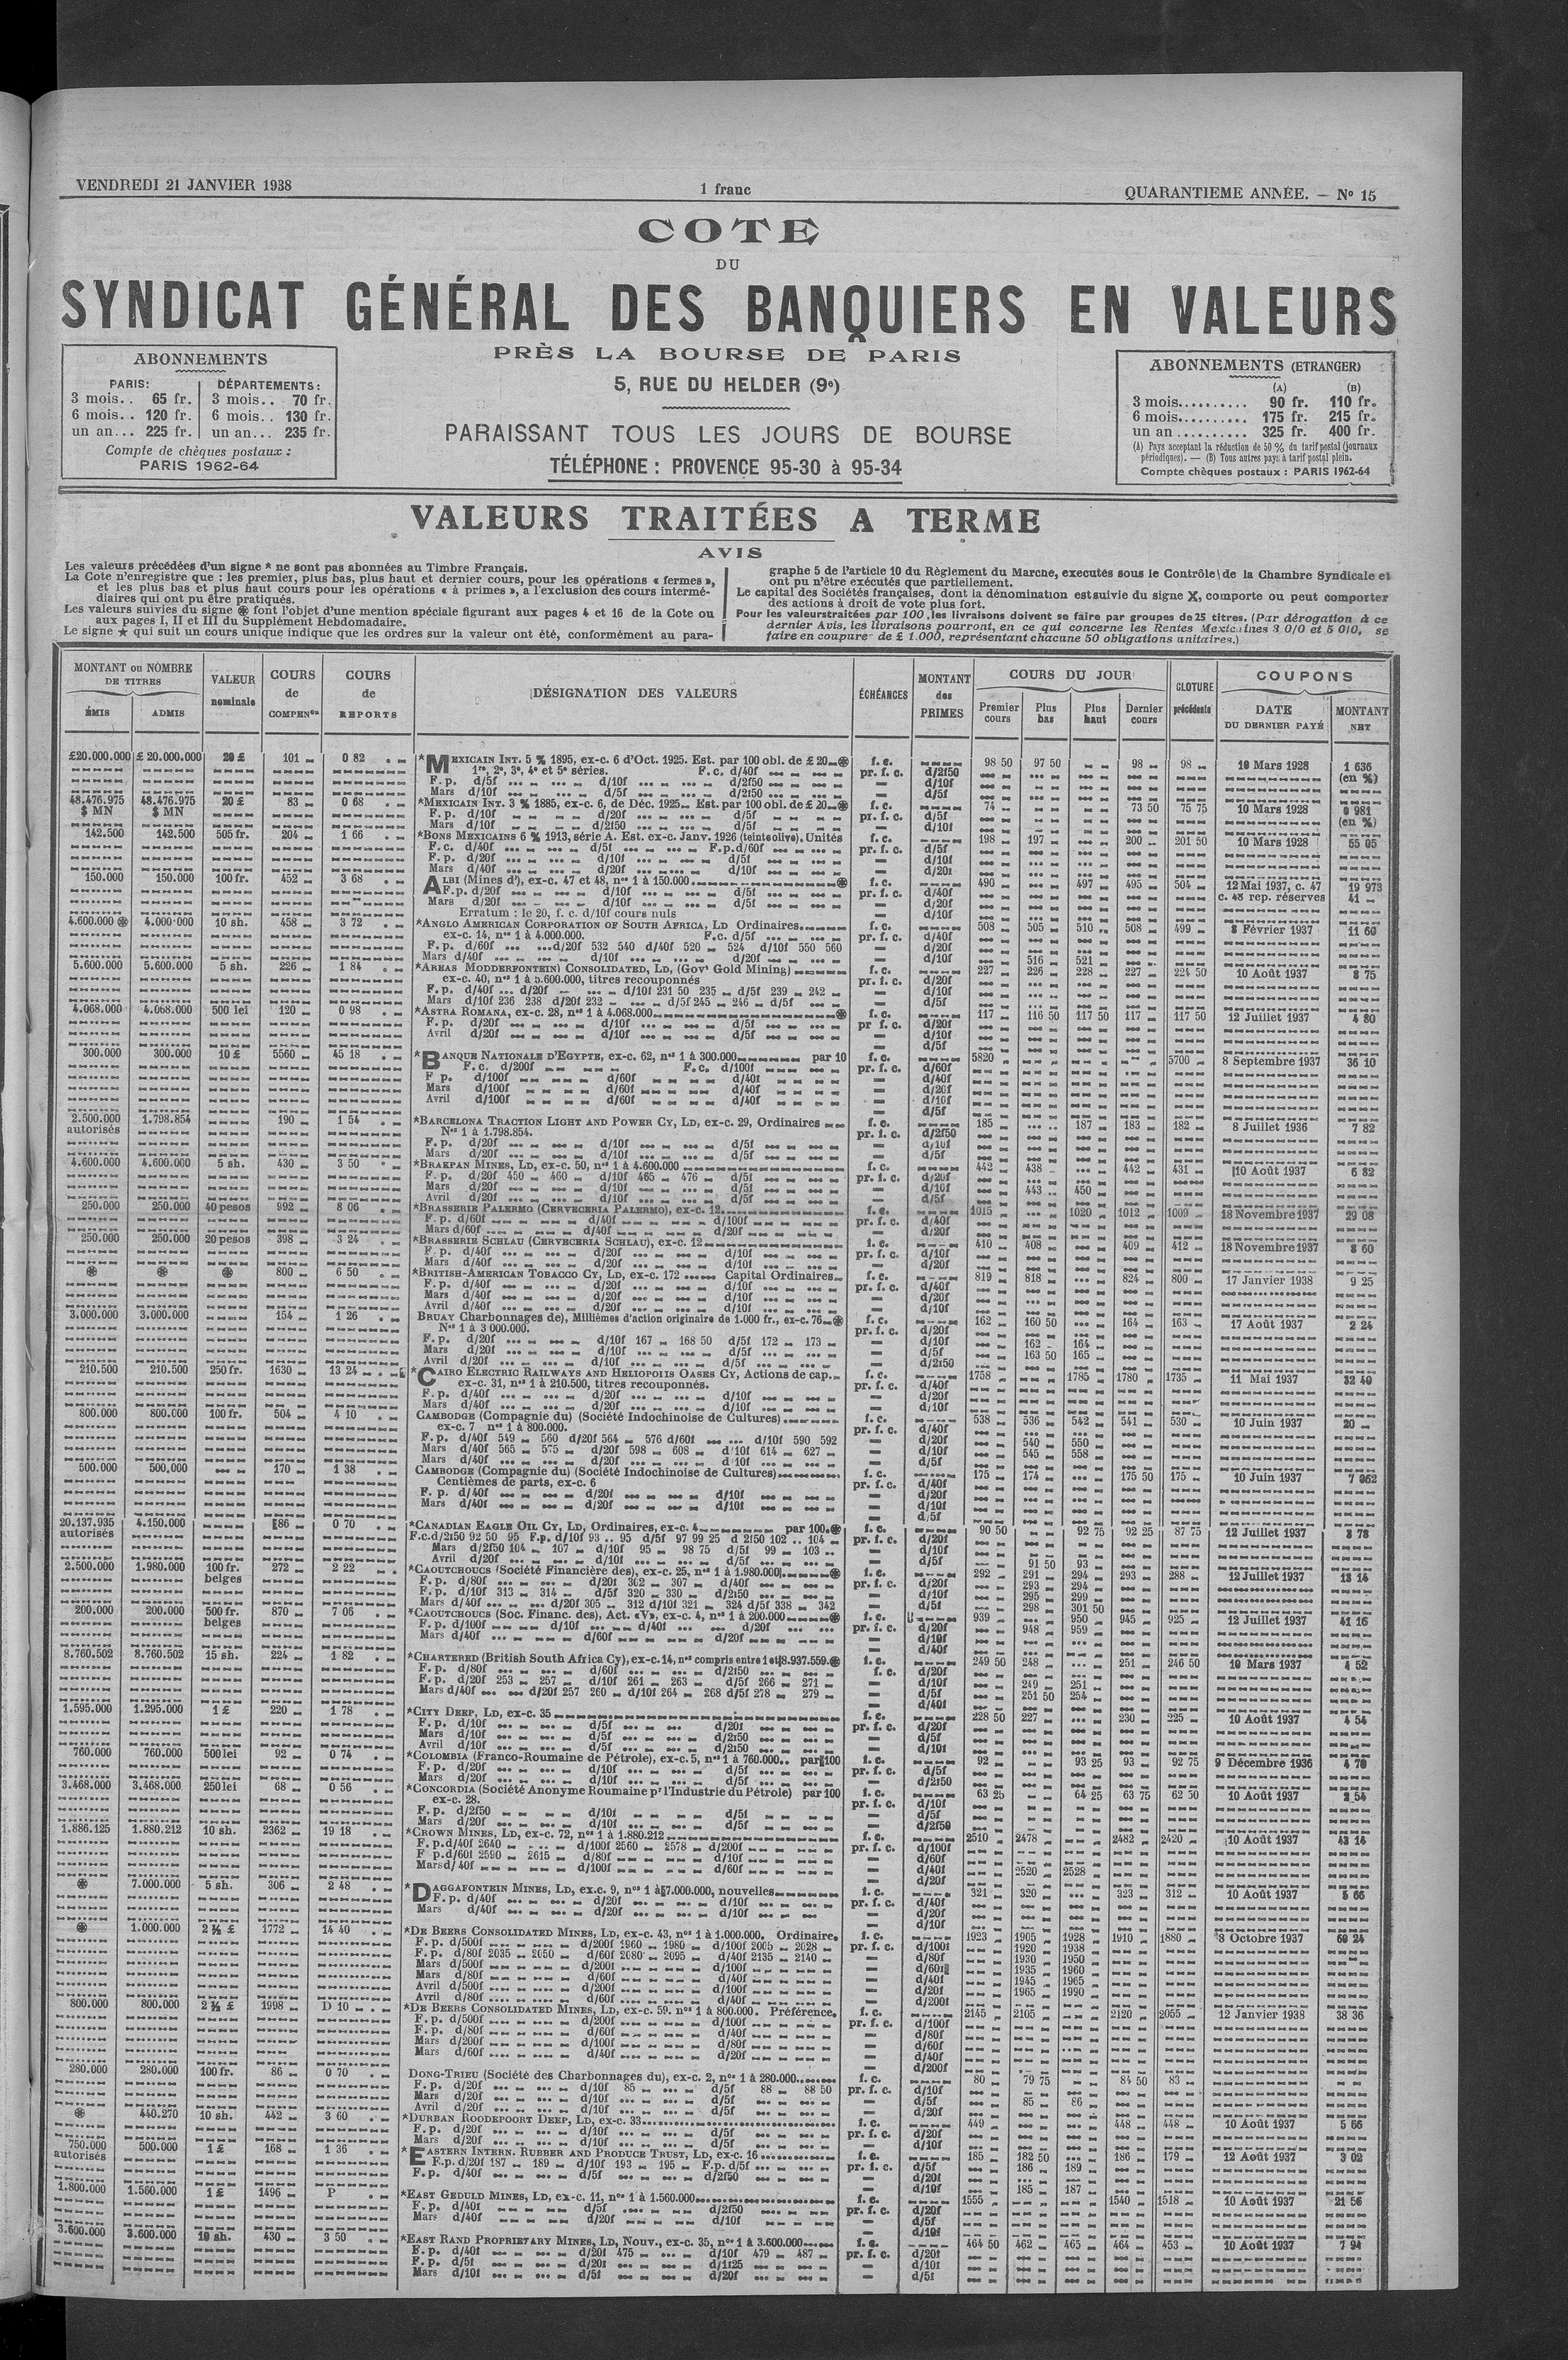 VENDREDI 21 JANVIER 1938
1 franc
QUARANTIEME ANNÉE. — No 15
COTE
DU
SYNDICAT GÉNÉRAL DES BANQUIERS EN VALEURS
PRÈS LA BOURSE DE PARIS
5, RUE DU HELDER (9e)
PARAISSANT TOUS LES JOURS DE BOURSE
TÉLÉPHONE : PROVENCE 95-30 à 95-34
ABONNEMENTS
PARIS: DÉPARTEMENTS:
3 mois.. 65 fr. 3 mois.. 70 fr.
6 mois.. 120 fr. 6 mois.. 130 fr.
un an... 225 fr. un an... 235 fr.
Compte de chèques postaux :
PARIS 1962-64
ABONNEMENTS (ETRANGER)
(A) (B)
3 mois.......... 90 fr. 110 fr.
6 mois.......... 175 fr. 215 fr.
un an .......... 325 fr. 400 fr.
(A) Pays acceptant la réduction de 50 % du tarif postal (journaux
périodiques). — (B) Tous autres pays à tarif postal plein.
Compte chèques postaux : PARIS 1962-64
VALEURS TRAITÉES A TERME
AVIS
Les valeurs précédées d'un signe * ne sont pas abonnées au Timbre Français.
La Cote n'enregistre que : les premier, plus bas, plus haut et dernier cours, pour les opérations « fermes »,
et les plus bas et plus haut cours pour les opérations « à primes », a l'exclusion des cours intermé-
diaires qui ont pu être pratiqués.
Les valeurs suivies du signe ⊛ font l'objet d'une mention spéciale figurant aux pages 4 et 16 de la Cote ou
aux pages I, II et III du Supplément Hebdomadaire.
Le signe ★ qui suit un cours unique indique que les ordres sur la valeur ont été, conformément au para-
graphe 5 de l'article 10 du Règlement du Marche, executés sous le Contrôle de la Chambre Syndicale et
ont pu n'être exécutés que partiellement.
Le capital des Sociétés françaises, dont la dénomination est suivie du signe X, comporte ou peut comporter
des actions à droit de vote plus fort.
Pour les valeurs traitées par 100, les livraisons doivent se faire par groupes de 25 titres. (Par dérogation à ce
dernier Avis, les livraisons pourront, en ce qui concerne les Rentes Mexicaines 3 0/0 et 5 0/0, se
faire en coupure de £ 1.000, représentant chacune 50 obligations unitaires.)
MONTANT ou NOMBRE DE TITRES
ÉMIS ADMIS
VALEUR nominale
COURS de COMPENon
COURS de REPORTS
DÉSIGNATION DES VALEURS
ÉCHÉANCES
MONTANT des PRIMES
COURS DU JOUR
Premier cours Plus bas Plus haut Dernier cours
CLOTURE précédente
COUPONS
DATE DU DERNIER PAYÉ
MONTANT NET
£20.000.000 £ 20.000.000 20 £ 101 0 82 *MEXICAIN INT. 5 % 1895, ex-c. 6 d'Oct. 1925. Est. par 100 obl. de £ 20 ⊛ f. c. 98 50 97 50 98 98 10 Mars 1928 1 636
1re, 2e, 3e, 4e et 5e séries. F.c. d/40f pr. f. c. d/2f50 (en %)
48.476.975 48.476.975 20 £ 83 0 68 *MEXICAIN INT. 3 % 1885, ex-c. 6, de Déc. 1925 Est. par 100 obl. de £ 20 ⊛ f. c. 74 73 50 75 75 10 Mars 1928 0 981
$ MN $ MN (en %)
142.500 142.500 505 fr. 204 1 66 *BONS MEXICAINS 6 % 1913, série A. Est. ex-c. Janv. 1926 (teinte olive). Unités f. c. 198 197 200 201 50 10 Mars 1928 55 05
150.000 150.000 100 fr. 452 3 68 ALBI (Mines d'), ex-c. 47 et 48, nos 1 à 150.000 ⊛ f. c. 490 497 495 504 12 Mai 1937, c. 47 19 973
c. 48 rep. réserves 41
Erratum : le 20, f. c. d/10f cours nuls
4.600.000 ⊛ 4.000.000 10 sh. 458 3 72 *ANGLO AMERICAN CORPORATION OF SOUTH AFRICA, LD Ordinaires f. c. 508 505 510 508 499 8 Février 1937 11 60
ex-c. 14, nos 1 à 4.000.000. F.c. d/5f
F.p. d/60f d/20f 532 540 d/40f 520 524 d/10f 550 560
Mars d/40f d/10f d/20f 516 521
5.600.000 5.600.000 5 sh. 226 1 84 *AREAS MODDERFONTEIN CONSOLIDATED, LD, (Govt Gold Mining) f. c. 227 226 228 227 224 50 10 Août 1937 8 75
ex-c. 40, nos 1 à 5.600.000, titres recouponnés
F. p. d/40f d/20f d/10f 231 50 235 d/5f 239 242
Mars d/10f 236 238 d/20f 232 d/5f 245 246 d/5f
4.068.000 4.068.000 500 lei 120 0 98 *ASTRA ROMANA, ex-c. 28, nos 1 à 4.068.000 ⊛ f. c. 117 116 50 117 50 117 117 50 12 Juillet 1937 4 80
300.000 300.000 10 £ 5560 45 18 *BANQUE NATIONALE D'EGYPTE, ex-c. 62, nos 1 à 300.000 par 10 f. c. 5820 5700 8 Septembre 1937 36 10
2.500.000 1.798.854 190 1 54 *BARCELONA TRACTION LIGHT AND POWER CY, LD, ex-c. 29, Ordinaires f. c. 185 187 183 182 8 Juillet 1936 7 82
autorisés Nos 1 à 1.798.854.
4.600.000 4.600.000 5 sh. 430 3 50 *BRAKPAN MINES, LD, ex-c. 50, nos 1 à 4.600.000 f. c. 442 438 442 431 10 Août 1937 6 82
F. p. d/20f 450 460 d/10f 465 476 d/5f
443 450
250.000 250.000 40 pesos 992 8 06 *BRASSERIE PALERMO (CERVECERIA PALERMO), ex-c. 12 f. c. 1015 1020 1012 1009 18 Novembre 1937 29 08
250.000 250.000 20 pesos 398 3 24 *BRASSERIE SCHLAU (CERVECERIA SCHLAU), ex-c. 12 f. c. 410 408 409 412 18 Novembre 1937 8 60
⊛ ⊛ ⊛ 800 6 50 *BRITISH-AMERICAN TOBACCO CY, LD, ex-c. 172 Capital Ordinaires f. c. 819 818 824 800 17 Janvier 1938 9 25
3.000.000 3.000.000 154 1 26 BRUAY Charbonnages de), Millièmes d'action originaire de 1.000 fr., ex-c. 76 ⊛ f. c. 162 160 50 164 163 17 Août 1937 2 24
Nos 1 à 3 000.000.
F. p. d/20f d/10f 167 168 50 d/5f 172 173
162 164
163 50 165
210.500 210.500 250 fr. 1630 13 24 *CAIRO ELECTRIC RAILWAYS AND HELIOPOLIS OASES CY, Actions de cap. f. c. 1758 1785 1780 1735 11 Mai 1937 32 40
ex-c. 31, nos 1 à 210.500, titres recouponnés.
800.000 800.000 100 fr. 504 4 10 CAMBODGE (Compagnie du) (Société Indochinoise de Cultures) f. c. 538 536 542 541 530 10 Juin 1937 20
ex-c. 7 nos 1 à 800.000.
F. p. d/40f 549 560 d/20f 564 576 d/60f d/10f 590 592 540 550
Mars d/40f 565 575 d/20f 598 608 d/10f 614 627 545 558
500.000 500.000 170 1 38 CAMBODGE (Compagnie du) (Société Indochinoise de Cultures) f. c. 175 174 175 50 175 10 Juin 1937 7 962
Centièmes de parts, ex-c. 6
20.137.935 4.150.000 86 0 70 *CANADIAN EAGLE OIL CY, LD, Ordinaires, ex-c. 4 par 100 ⊛ f. c. 90 50 92 75 92 25 87 75 12 Juillet 1937 3 78
autorisés F.c.d/2f50 92 50 95 F.p. d/10f 93 95 d/5f 97 99 25 d 2f50 102 104
Mars d/2f50 104 107 d/10f 95 98 75 d/5f 99 103
91 50 93
2.500.000 1.980.000 100 fr. 272 2 22 *CAOUTCHOUCS (Société Financière des), ex-c. 25, nos 1 à 1.980.000 ⊛ f. c. 292 291 294 293 288 12 Juillet 1937 13 14
belges F. p. d/80f d/20f 362 307 d/40f 293 294
F. p. d/10f 313 314 d/5f 320 330 d/2f50 295 299
Mars d/40f d/20f 305 312 d/10f 321 324 d/5f 338 342 298 301 50
200.000 200.000 500 fr. 870 7 06 *CAOUTCHOUCS (Soc. Financ. des), Act. «V», ex-c. 4, nos 1 à 200.000 ⊛ f. c. 939 950 945 925 12 Juillet 1937 41 16
belges 948 959
8.760.502 8.760.502 15 sh. 224 1 82 *CHARTERED (British South Africa Cy), ex-c. 14, nos compris entre 1 et 8.937.559 ⊛ f. c. 249 50 248 251 246 50 10 Mars 1937 4 52
F. p. d/20f 253 257 d/10f 261 263 d/5f 266 271 249 251
Mars d/40f d/20f 257 260 d/10f 264 268 d/5f 278 279 251 50 254
1.595.000 1.295.000 1 £ 220 1 78 *CITY DEEP, LD, ex-c. 35 f. c. 228 50 227 230 225 10 Août 1937 4 54
760.000 760.000 500 lei 92 0 74 *COLOMBIA (Franco-Roumaine de Pétrole), ex-c. 5, nos 1 à 760.000 par 100 f. c. 92 93 25 93 92 75 9 Décembre 1936 4 70
3.468.000 3.468.000 250 lei 68 0 56 *CONCORDIA (Société Anonyme Roumaine pr l'Industrie du Pétrole) par 100 f. c. 63 25 64 25 63 75 62 50 10 Août 1937 2 54
ex-c. 28.
1.886.125 1.880.212 10 sh. 2362 19 18 *CROWN MINES, LD, ex-c. 72, nos 1 à 1.880.212 f. c. 2510 2478 2482 2420 10 Août 1937 43 14
F. p. d/40f 2640 d/100f 2560 2578 d/200f
F p. d/60f 2590 2615 d/80f d/10f
2520 2528
⊛ 7.000.000 5 sh. 306 2 48 *DAGGAFONTEIN MINES, LD, ex.c. 9, nos 1 à 7.000.000, nouvelles f. c. 321 320 323 312 10 Août 1937 5 66
⊛ 1.000.000 2 ½ £ 1772 14 40 *DE BEERS CONSOLIDATED MINES, LD, ex-c. 43, nos 1 à 1.000.000. Ordinaire. f. c. 1923 1905 1928 1910 1880 8 Octobre 1937 60 24
F. p. d/500f d/200f 1960 1980 d/100f 2005 2028 1920 1938
F. p. d/80f 2035 2050 d/60f 2080 2095 d/40f 2135 2140 1930 1950
1935 1960
1945 1965
1965 1990
800.000 800.000 2 ½ £ 1998 D 10 *DE BEERS CONSOLIDATED MINES, LD, ex-c. 59. nos 1 à 800.000. Préférence. f. c. 2145 2105 2120 2055 12 Janvier 1938 38 36
280.000 280.000 100 fr. 86 0 70 DONG-TRIEU (Société des Charbonnages du), ex-c. 2, nos 1 à 280.000 f. c. 80 79 75 84 50 83
F. p. d/20f d/10f 85 d/5f 88 88 50
85 86
⊛ 440.270 10 sh. 442 3 60 *DURBAN ROODEPOORT DEEP, LD, ex-c. 33 f. c. 449 448 448 10 Août 1937 5 66
750.000 500.000 1 £ 168 1 36 *EASTERN INTERN. RUBBER AND PRODUCE TRUST, LD, ex-c. 16 f. c. 185 182 50 186 179 12 Août 1937 3 02
autorisés F.p. d/20f 187 189 d/10f 193 195 F.p. d/5f 186 189
185 187
1.800.000 1.560.000 1 £ 1496 P *EAST GEDULD MINES, LD, ex-c. 11, nos 1 à 1.560.000 f. c. 1555 1540 1518 10 Août 1937 21 56
3.600.000 3.600.000 10 sh. 430 3 50 *EAST RAND PROPRIETARY MINES, LD, Nouv., ex-c. 35, nos 1 à 3.600.000 f. c. 464 50 462 465 464 453 10 Août 1937 7 94
F. p. d/40f d/20f 475 d/10f 479 487
F. p. d/5f d/20f d/1f25
Mars d/10f d/5f d/20f